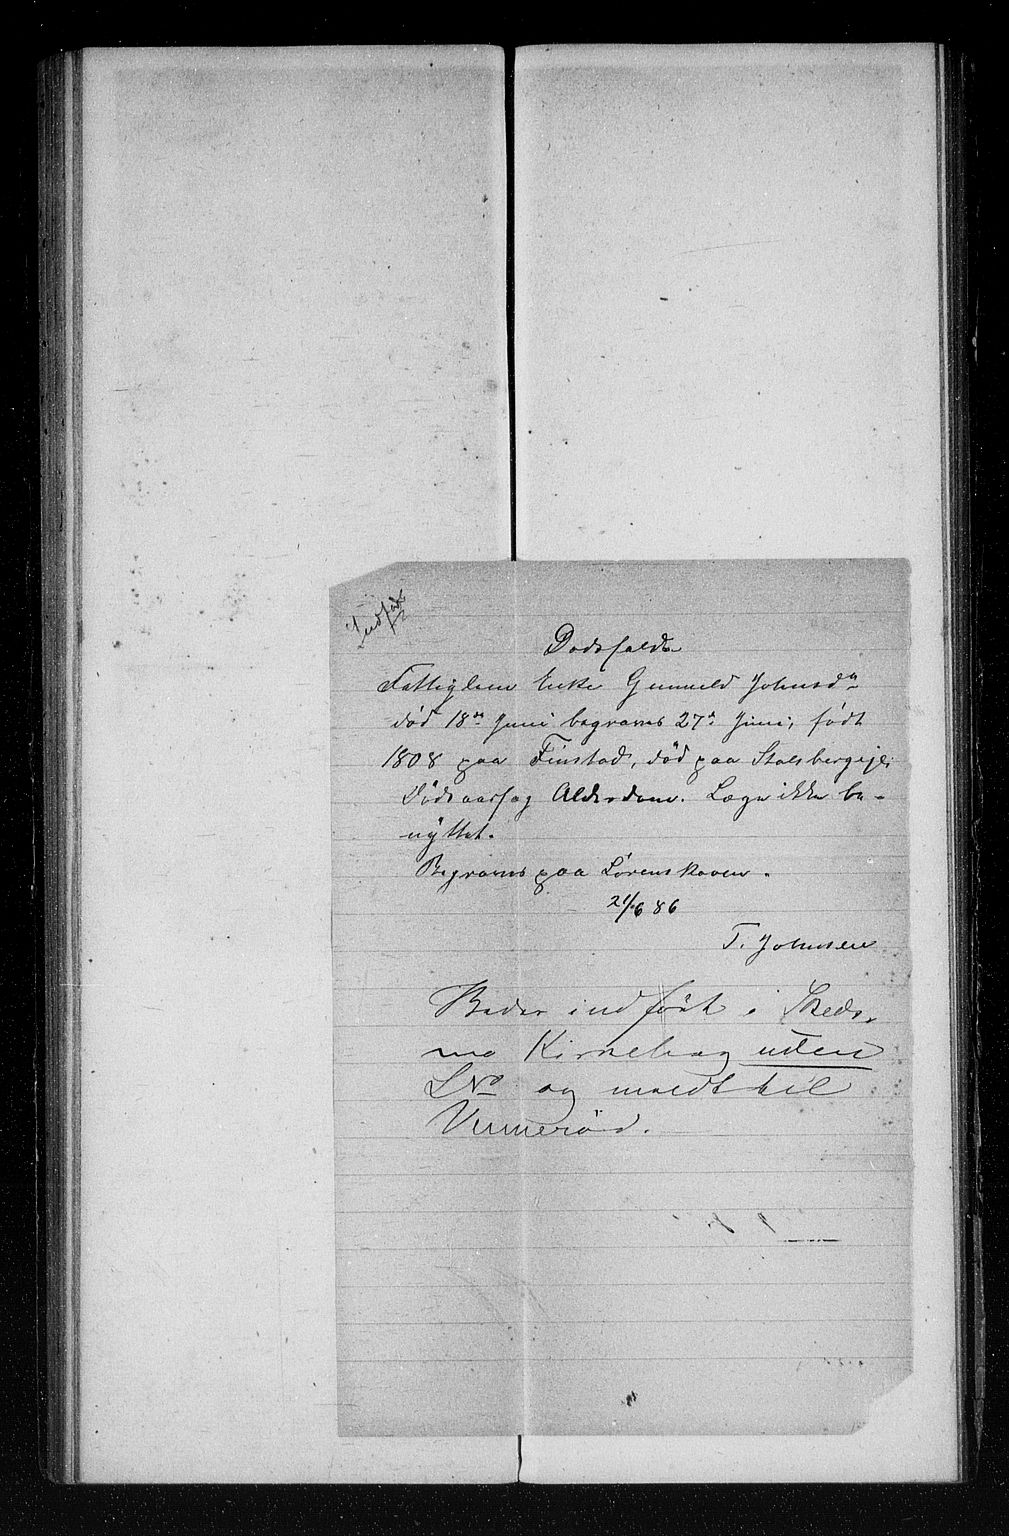 Indført
Dødsfald
Fattiglem Enke Gunnild Johnsdr
død 18de Juni begraves 27d Juni, født
1808 paa Finstad, død paa Stalsbergejer
Dødsaarsag Alderdom. Læge ikke be-
nyttet.
Begraves paa Lørenskoven.
21/6 86
T. Johnsen
Bedes indført i Skeds-
mo Kirkebog uden
LNo og meldt til